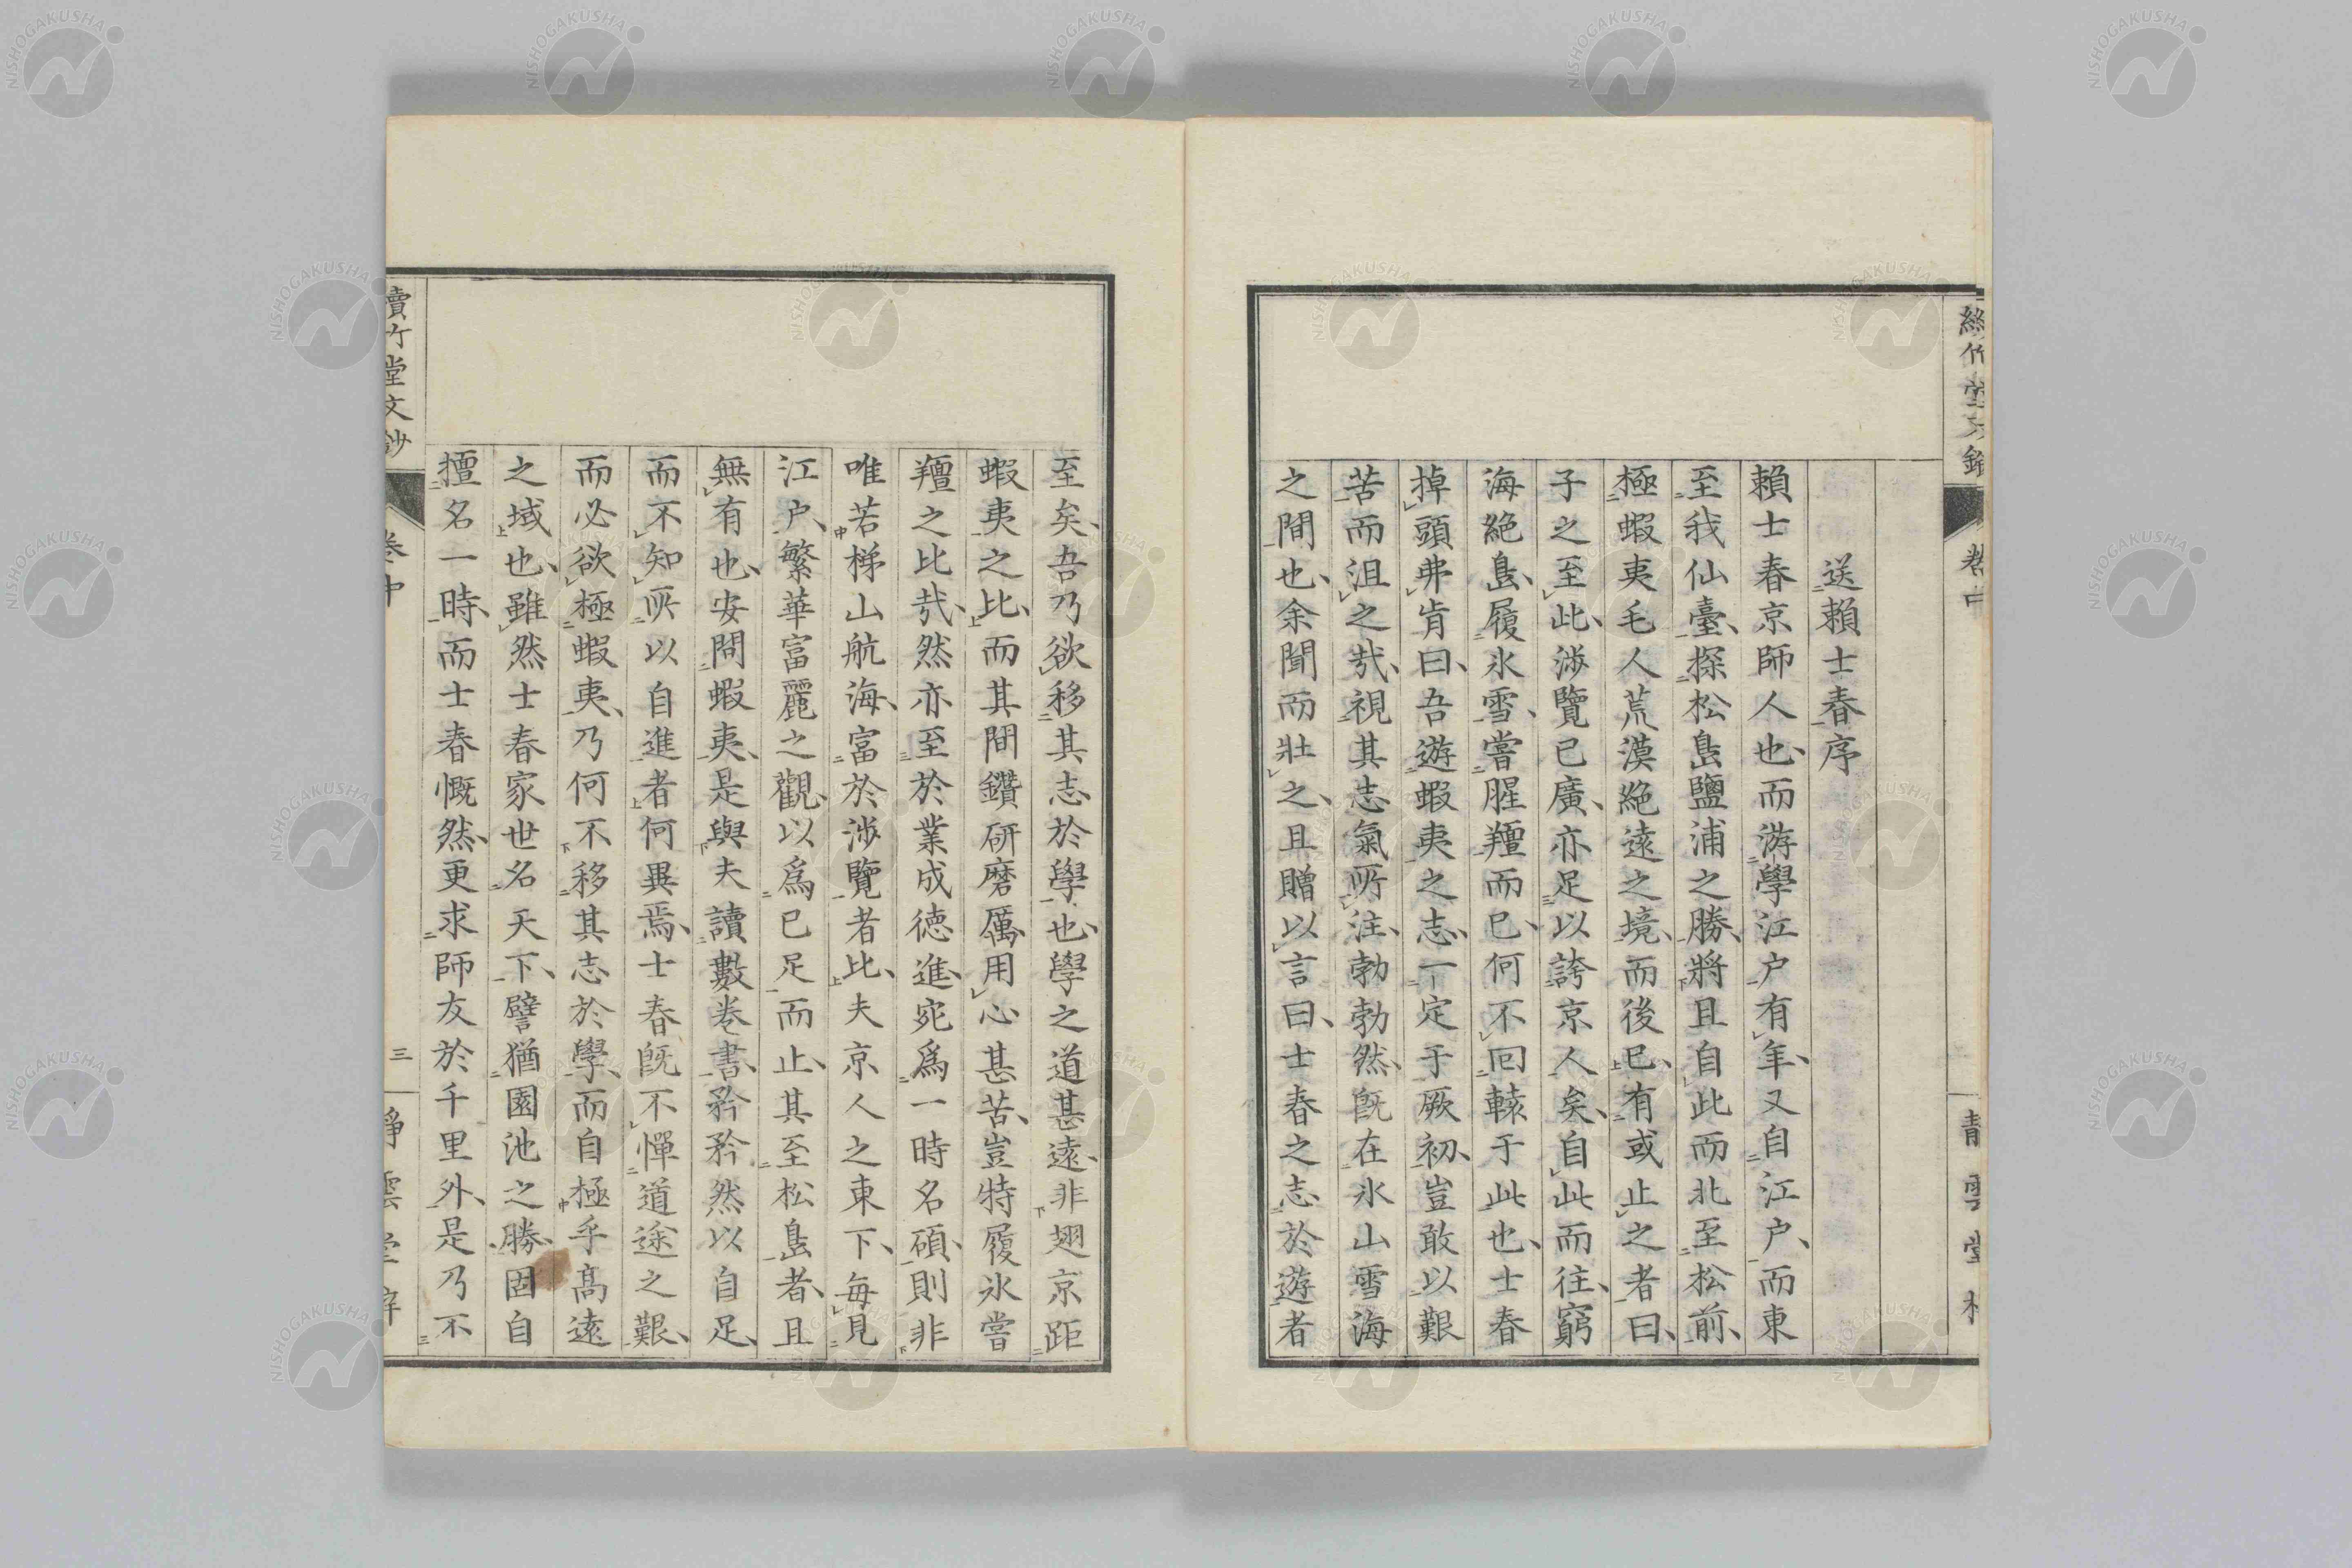 送賴士春序
賴士春京師人也、而游學江戸有年、又自江戸、而東
至我仙臺、探松島鹽浦之勝、將且自此而北至松前、
極蝦夷毛人荒漠絶遠之境、而後已、有或止之者曰、
子之至此、渉覽已廣、亦足以誇京人矣、自此而往、窮
海絶島、履氷雪、嘗腥羶而已、何不回轅于此也、士春
掉頭弗肯曰、吾遊蝦夷之志、一定于厥初、豈敢以艱
苦而沮之哉、視其志氣所注、勃勃然、既在氷山雪海
之間也、余聞而壯之、且贈以言曰、士春之志於遊者
至矣、吾乃欲移其志於學也、學之道甚遠、非翅京距
蝦夷之比、而其間鑽研磨厲、用心甚苦、豈特履氷嘗
羶之比哉、然亦至於業成徳進、宛爲一時名碩、則非
唯若梯山航海、富於渉覽者比、夫京人之東下、毎見
江戸、繁華富麗之觀、以爲已足而止、其至松島者、且
無有也、安問蝦夷、是與夫讀數巻書、矜矜然以自足、
而不知所以自進者何異焉、士春既不憚道途之艱、
而必欲極蝦夷、乃何不移其志於學、而自極乎高遠
之域也、雖然士春家世名天下、譬猶園池之勝、固自
擅名一時、而士春慨然、更求師友於千里外、是乃不
竹堂文鈔
卷中
三
NISHOGAKUSHA